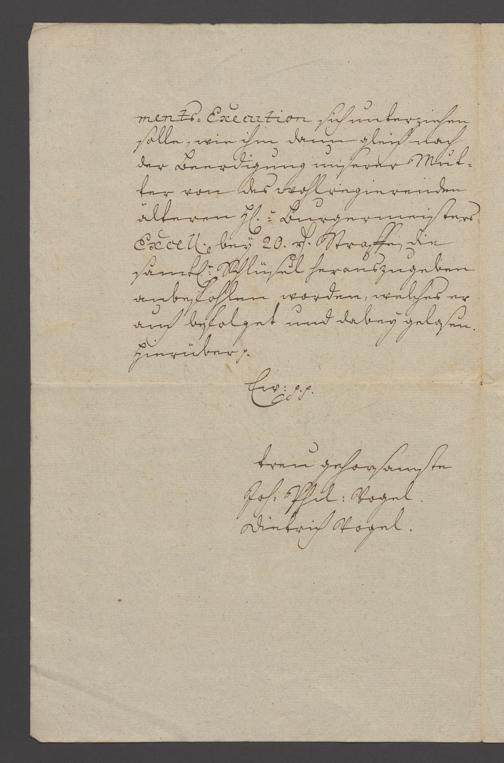 ments-Execution sich unterziehen
solle, wie ihm dann gleich nach
der Beerdigung unserer Mut-
ter von des wohlregierenden
älteren H.: Burgermeisters
Excell. bey 20. Straffe, die
samtl: Schlüssel herauszugeben
anbefohlen worden, welches er
auch befolget und dabey gelassen.
hierüber
Ew: pp.
treu gehorsamste
Joh: Phil: Vogel.
Dietrich Vogel.